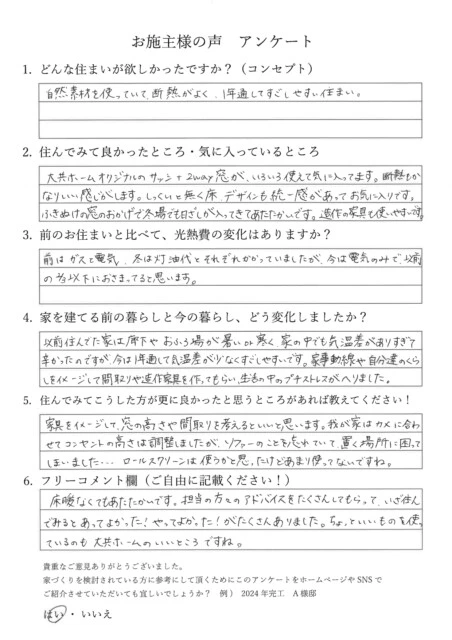 お施主様の声　アンケート
1. どんな住まいが欲しかったですか？（コンセプト）
自然素材を使っていて、断熱がよく、1年通してすごしやすい住まい。
2. 住んでみて良かったところ・気に入っているところ
大共ホームオリジナルのサッシ＋2way窓が、いろいろ使えて気に入ってます。断熱もか
なりいい感じがします。しっくいと無く床、デザインも統一感があってお気に入りです。
ふきぬけの窓のおかげで冬場でも日ざしが入ってきてあたたかいです。造作の家具も使いやすいです。
3. 前のお住まいと比べて、光熱費の変化はありますか？
前はガスと電気、冬は灯油代とそれぞれかかっていましたが、今は電気のみで、以前
の 以下におさまってると思います。
4. 家を建てる前の暮らしと今の暮らし、どう変化しましたか？
以前住んでた家は廊下やおふろ場が暑いor寒く、家の中でも気温差がありすぎて
辛かったのですが、今は1年通して気温差が少なくすごしやすいです。家事動線や自分達のくら
しをイメージして間取りや造作家具を作ってもらい、生活の中のプチストレスがへりました。
5. 住んでみてこうした方が更に良かったと思うところがあれば教えてください！
家具をイメージして、窓の高さや間取りを考えるといいと思います。我が家はカメに合わ
せてコンセントの高さは調整しましたが、ソファーのことを忘れていて、置く場所に困って
しまいました… ロールスクリーンは使うかと思ったけどあまり使ってないですね。
6. フリーコメント欄（ご自由に記載ください！）
床暖なくてもあたたかいです。担当の方々のアドバイスをたくさんしてもらって、いざ住ん
でみるとあってよかった！やってよかった！がたくさんありました。ちょっといいものを使っ
ているのも大共ホームのいいところですね。
貴重なご意見ありがとうございました。
家づくりを検討されている方に参考にして頂くためにこのアンケートをホームページやSNSで
ご紹介させていただいても宜しいでしょうか？　例） 2024年完工　A様邸
はい・いいえ